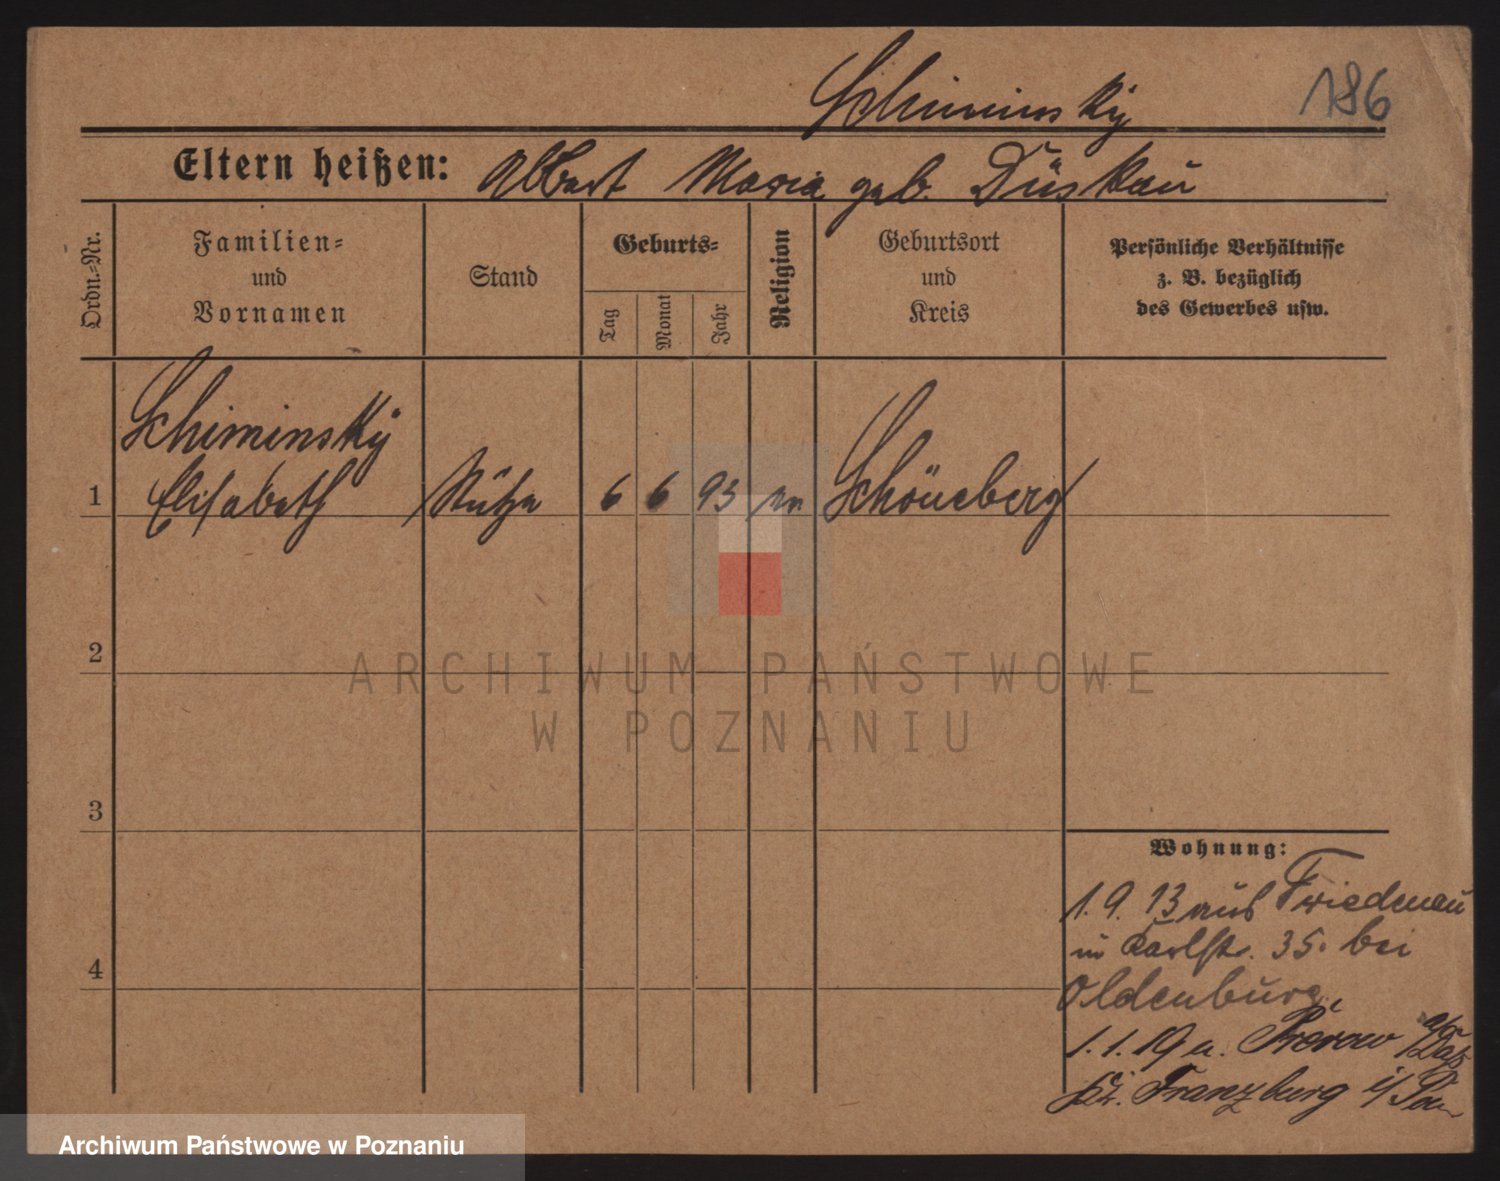 Schiminsky
186
Eltern heißen: Albert Maria geb. Düskau
Ordn.=Nr.
Familien=
und
Vornamen
Stand
Geburts=
Tag
Monat
Jahr
Religion
Geburtsort
und
Kreis
Persönliche Verhältnisse
z. B. bezüglich
des Gewerbes usw.
Schiminsky
1 Elisabeth Stütze 6 6 93 Schöneberg
2
3
4
Wohnung:
1. 9. 13 aus Friedenau
in Karlstr. 35. bei
Oldenburg.
1. 1. 19 n. Prerow a/Darß
Kr. Franzburg i/Pom
ARCHIWUM PAŃSTWOWE
W POZNANIU
Archiwum Państwowe w Poznaniu